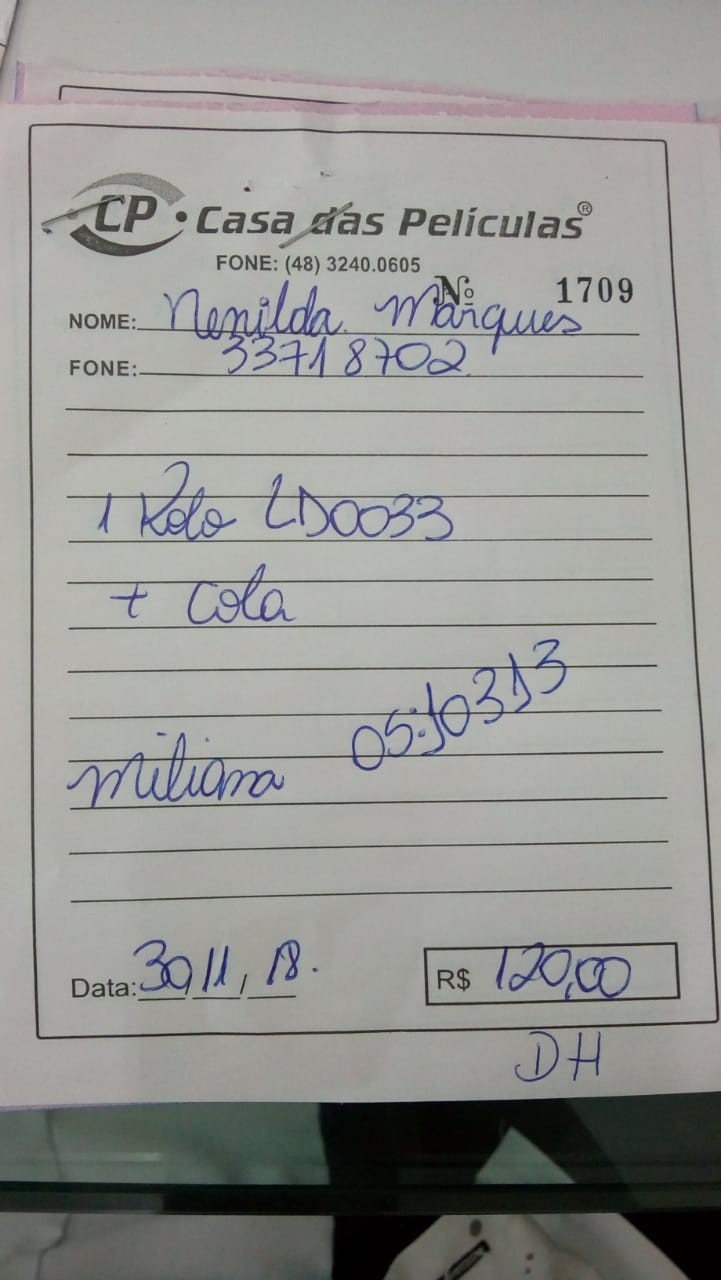 CP • Casa das Películas®
FONE: (48) 3240.0605
Nº 1709
NOME: Nenilda Marques
FONE: 33718702
1 Rolo LD0033
+ Cola
05:10313
Miliana
Data: 30/11/18.
R$ 120,00
DH